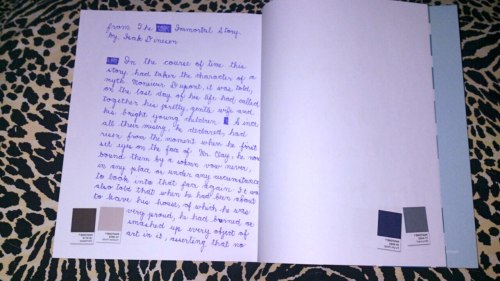 from The Immortal Story
by Isak Dinesen
In the course of time this
story had taken the character of a
myth. Monsieur Dupont, it was told,
on the last day of his life had called
together his pretty, gentle wife and
his bright young children. Since
all their misery, he declared, had
risen from the moment when he first
set eyes on the face of Mr. Clay, he now
bound them by a solemn vow never,
in any place or under any circumstances
to look into that face again. It was
also told that when he had been about
to leave his house, of which he was
very proud, he had burned or
smashed up every object of
art in it, asserting that no